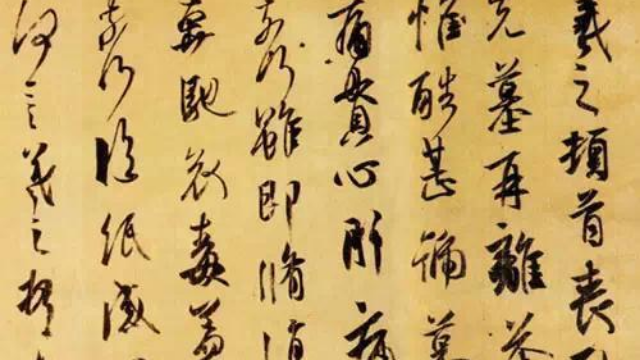 羲之頓首喪
先墓再離荼
惟酷甚號慕
痛貫心肝痛
奈何雖即脩
奔馳哀毒益
奈何臨紙感
何言羲之頓首